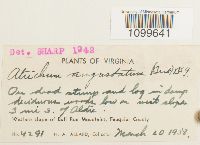 1099641
Det. SHARP 1942
PLANTS OF VIRGINIA
Atrichum angustatum
On dead stump and log in damp
deciduous woods low on west slope
3 mi s. of Aldie.
Western slope of Bull Run Mountains, Fauquier County
No. 4291 H. A. ALLARD, Collector March 20 1938